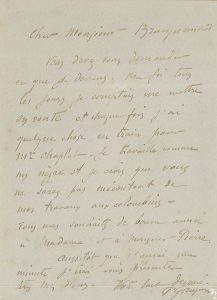 Cher Monsieur Bracquemond
Vous devez vous demander
ce que je deviens. Ma foi tous
les jours je voudrais vous mettre
au courant et chaque fois j'ai
quelque chose en train pour
Mr Chaplet. Je travaille comme
un nègre et je crois que vous
ne serez pas mécontent de
mes travaux
Tous mes souhaits de bonne année
à Madame et à Monsieur Pierre
Aussitôt que j'aurai une
minute j'irai vous présenter
Votre tout dévoué
P Gauguin